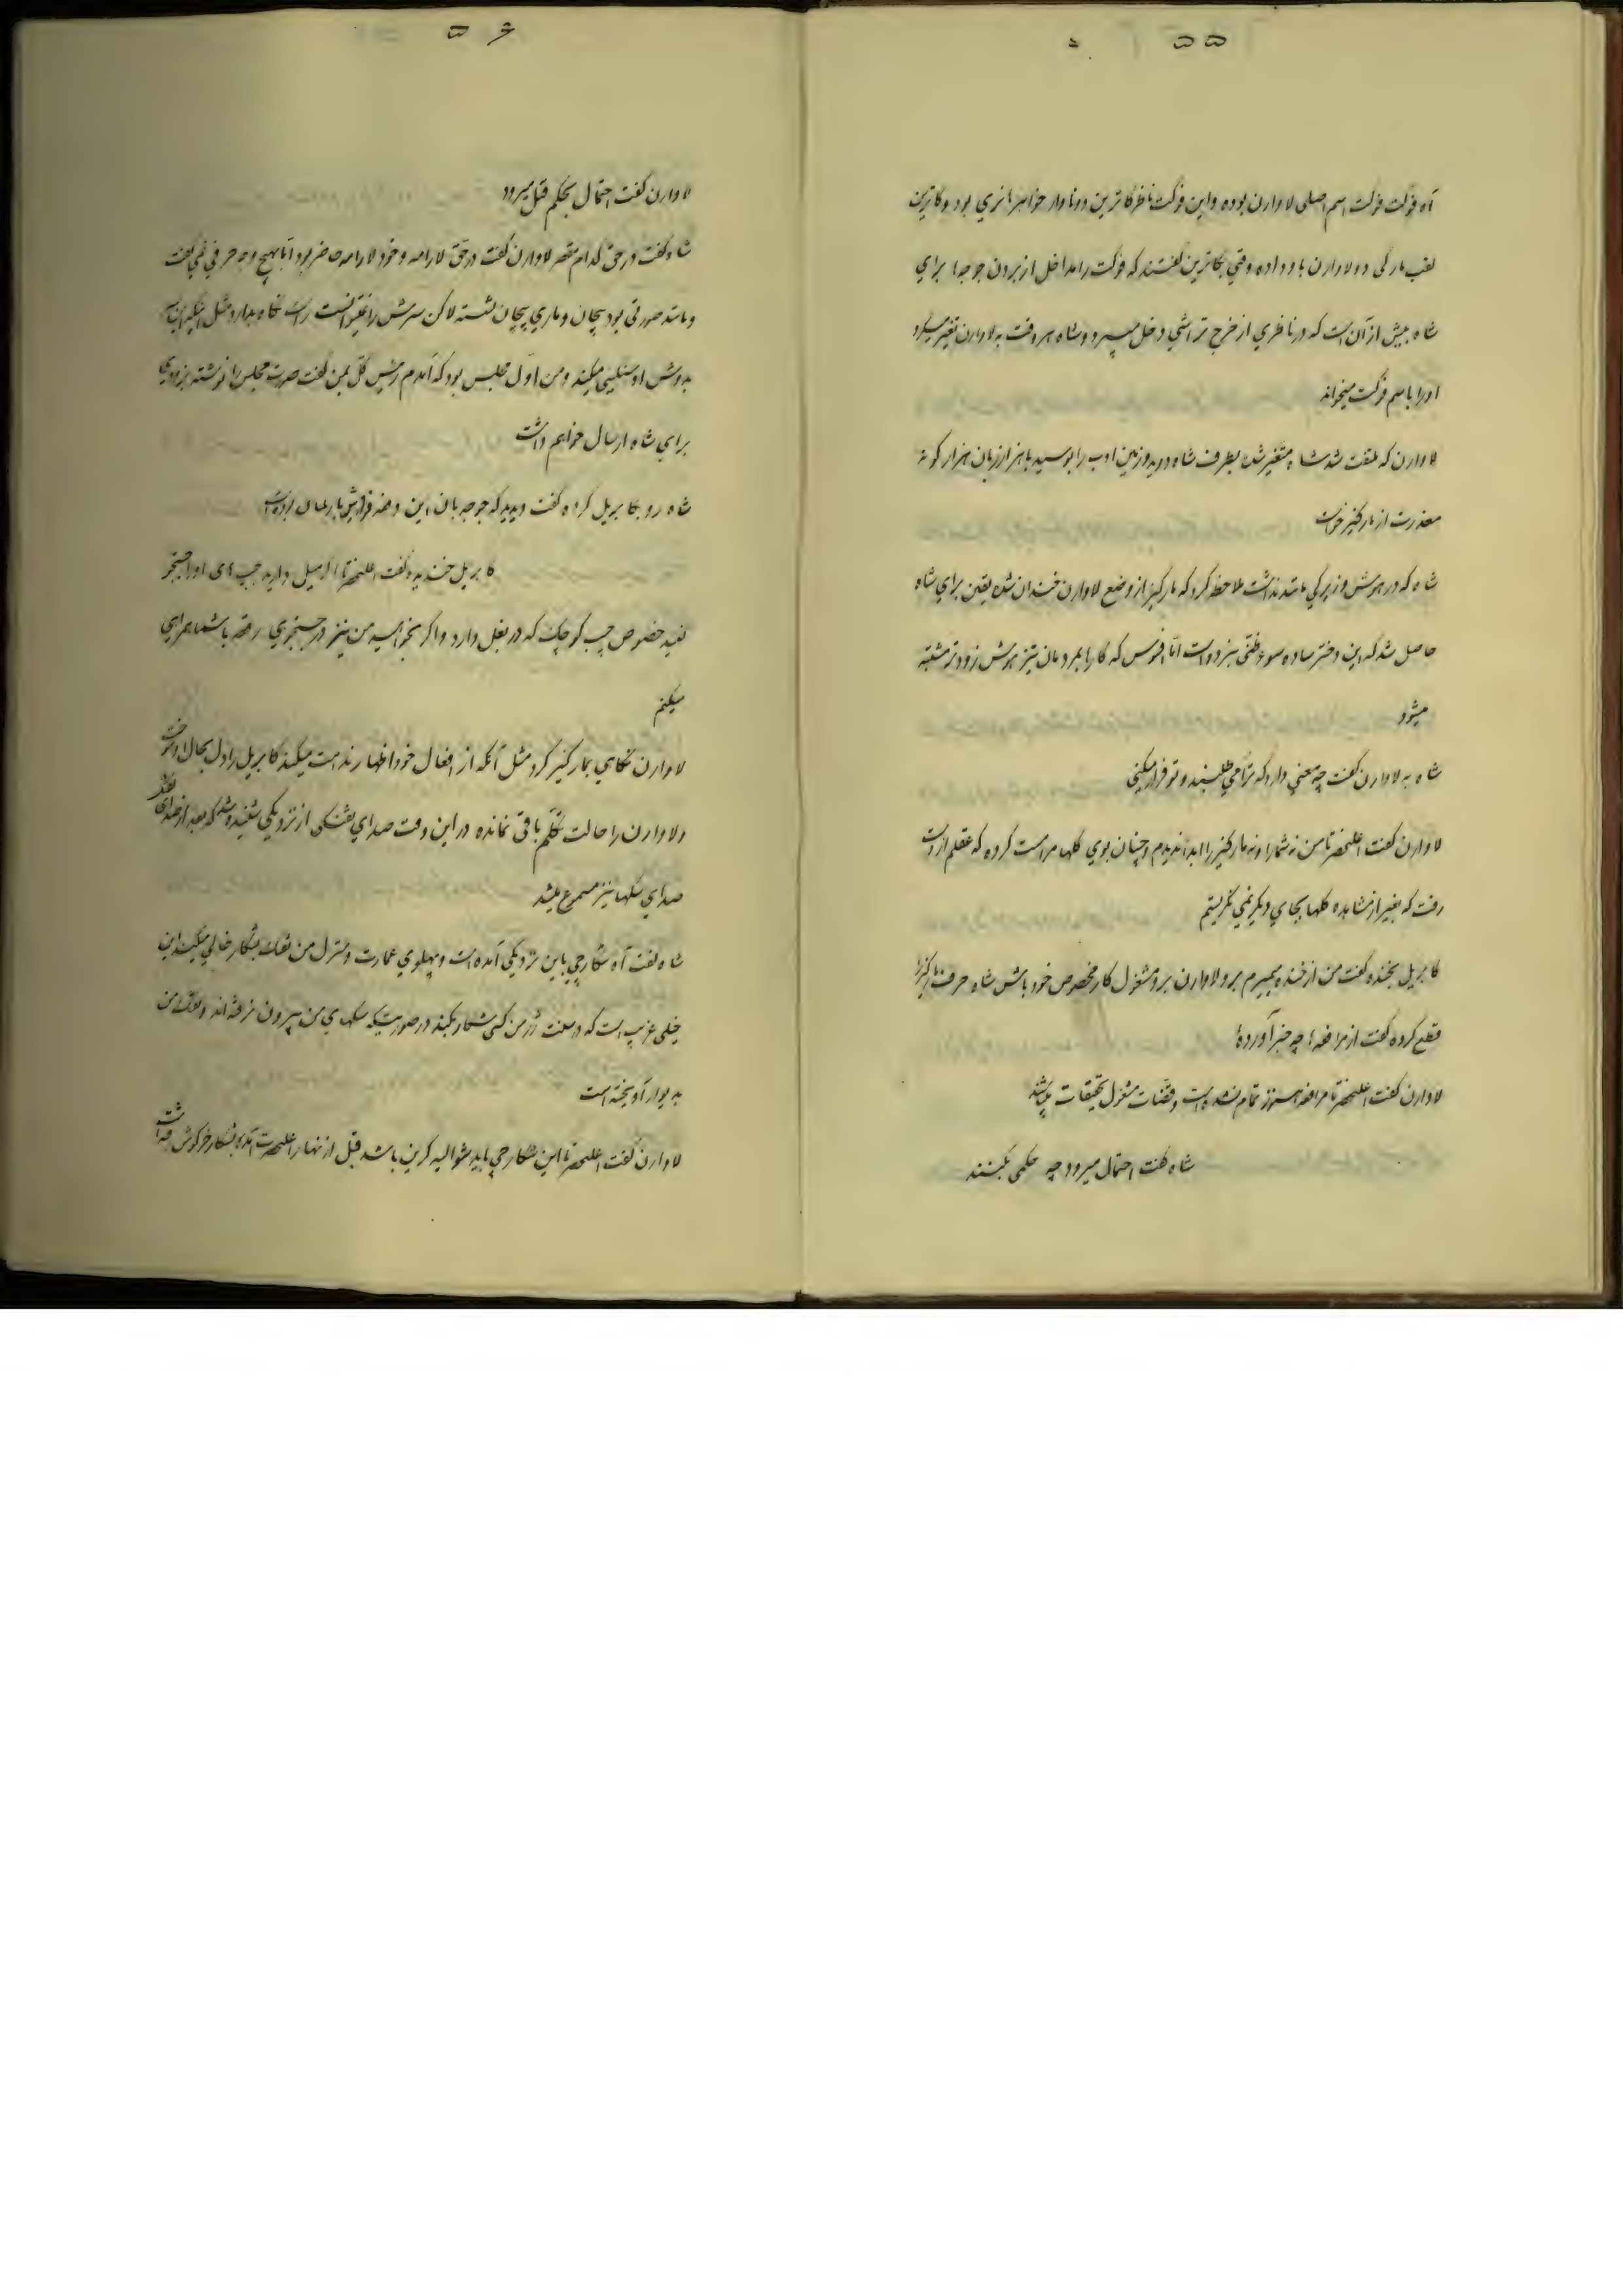 ۵۵
آه فوکت فوکت اسم اصلی لاوارن بوده و این فوکت ناظر کاترین دونا وار خواهر هانری بود و کاترین
لقب مارکی دولاوارن باو داده وقتی بکاترین گفتند که فوکت را مداخل از بردن جوجها برای
شاه بیش از آن است که در ناظری از خرج تراشی دخل میبرد و شاه هر وقت به لاوارن تغیر میکرد
او را باسم فوکت میخواند
لاوارن که ملتفت شد شاه متغیر شده بطرف شاه دوید و زمین ادب را بوسید با هزار زبان هزار گونه
معذرت از مارکیز خواست
شاه که در هوش و زیرکی مانند نداشت ملاحظه کرد که مارکیز از وضع لاوارن خندان شده یقین برای شاه
حاصل شد که این دختر ساده سوء ظنی نبرده است اما افسوس که کارها بمردمان تیز هوش زودتر مشتبه
میشود
شاه به لاوارن گفت چه معنی دارد که ترا می طلبند و تو فرار میکنی
لاوارن گفت اعلیحضرتا من نه شما را و نه مارکیز را ابدا ندیدم و چنان بوی گلها مرا مست کرده که عقلم از دست
رفت که بغیر از مشاهده گلها بجای دیگر نمی نگریستم
کابریل بخنده گفت من از خنده میمیرم برو لاوارن برو مشغول کار مخصوص خود باش شاه حرف مارکیز را
قطع کرده گفت از مرافعه چه خبر آورده
لاوارن گفت اعلیحضرتا مرافعه هنوز تمام نشده است و قضات مشغول تحقیقات میباشند
شاه گفت احتمال میرود چه حکمی بکنند
۵۶
لاوارن گفت احتمال بحکم قتل میرود
شاه گفت در حق کدام مقصر لاوارن گفت در حق لارامه و خود لارامه حاضر بود اما بهیچ وجه حرفی نمی گفت
و مانند صورتی بود بیجان و ماری پیچان نشسته لاکن سرش را نمیتوانست راست نگاه بدارد مثل اینکه این سر
بدوش او سنگینی میکند و من اول مجلس بود که آمدم رئیس کل بمن گفت صورت مجلس را نوشته بزودی
برای شاه ارسال خواهم داشت
شاه رو بکابریل کرده گفت دیدید که جوجه بان این دفعه فراش پارلمان بوده است
کابریل خندیده گفت اعلیحضرتا اگر میل دارید جیب های او را جستجو
کنید خصوص جیب کوچک که در بغل دارد و اگر بخواهید من نیز در جستجوی رقعه با شما همراهی
میکنم
لاوارن نگاهی بمارکیز کرد مثل آنکه از افعال خود اظهار ندامت میکند کابریل را دل بحال او سوخت
و لاوارن را حالت تکلم باقی نمانده در این وقت صدای تفنگی از نزدیکی شنیده شد که بعد از صدای تفنگ
صدای سگها نیز مسموع میشد
شاه گفت آه شکارچی باین نزدیکی آمده است و پهلوی عمارت و منزل من تفنگ بشکار خالی میکند این
خیلی غریب است که در سلطنت من کسی شکار بکند در صورتیکه سگهای من بیرون نرفته اند و تفنگ من
به دیوار آویخته است
لاوارن گفت اعلیحضرتا این شکارچی باید شوالیه کرین باشد قبل از نهار اعلیحضرت آمده بشکار خرگوش رفته است